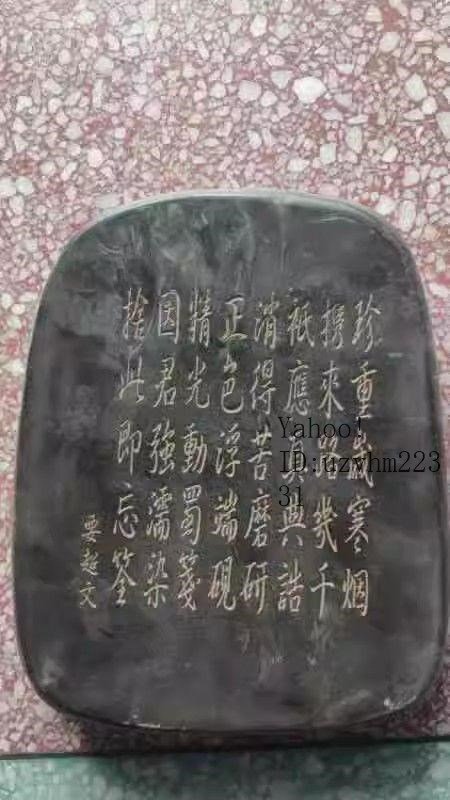 珍重歲寒烟
携來路幾千
祇應真典誥
消得苦磨研
正色浮端硯
精光動蜀箋
因君強濡染
捨此即忘筌
文
Yahoo!
ID:uzyhm223
31